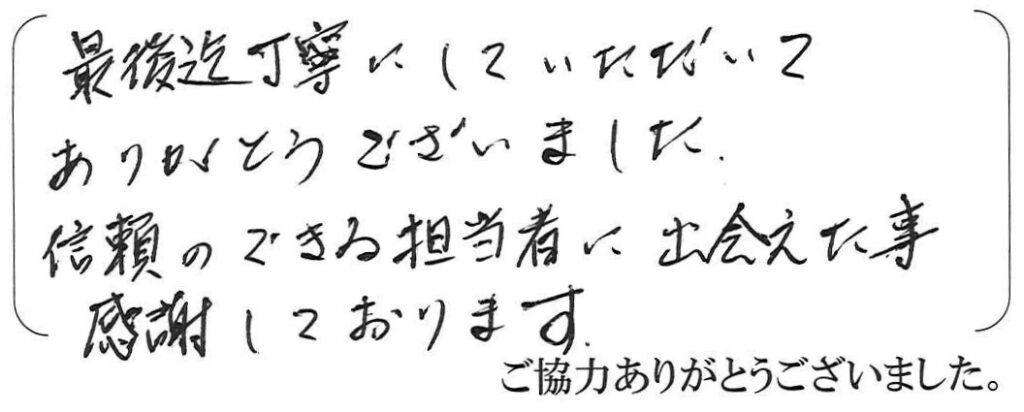 最後迄丁寧にしていただいて
ありがとうございました.
信頼のできる担当者に出会えた事
感謝しております.
ご協力ありがとうございました。